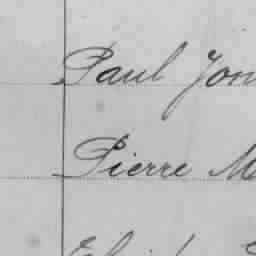 Paul Jon
Pierre M